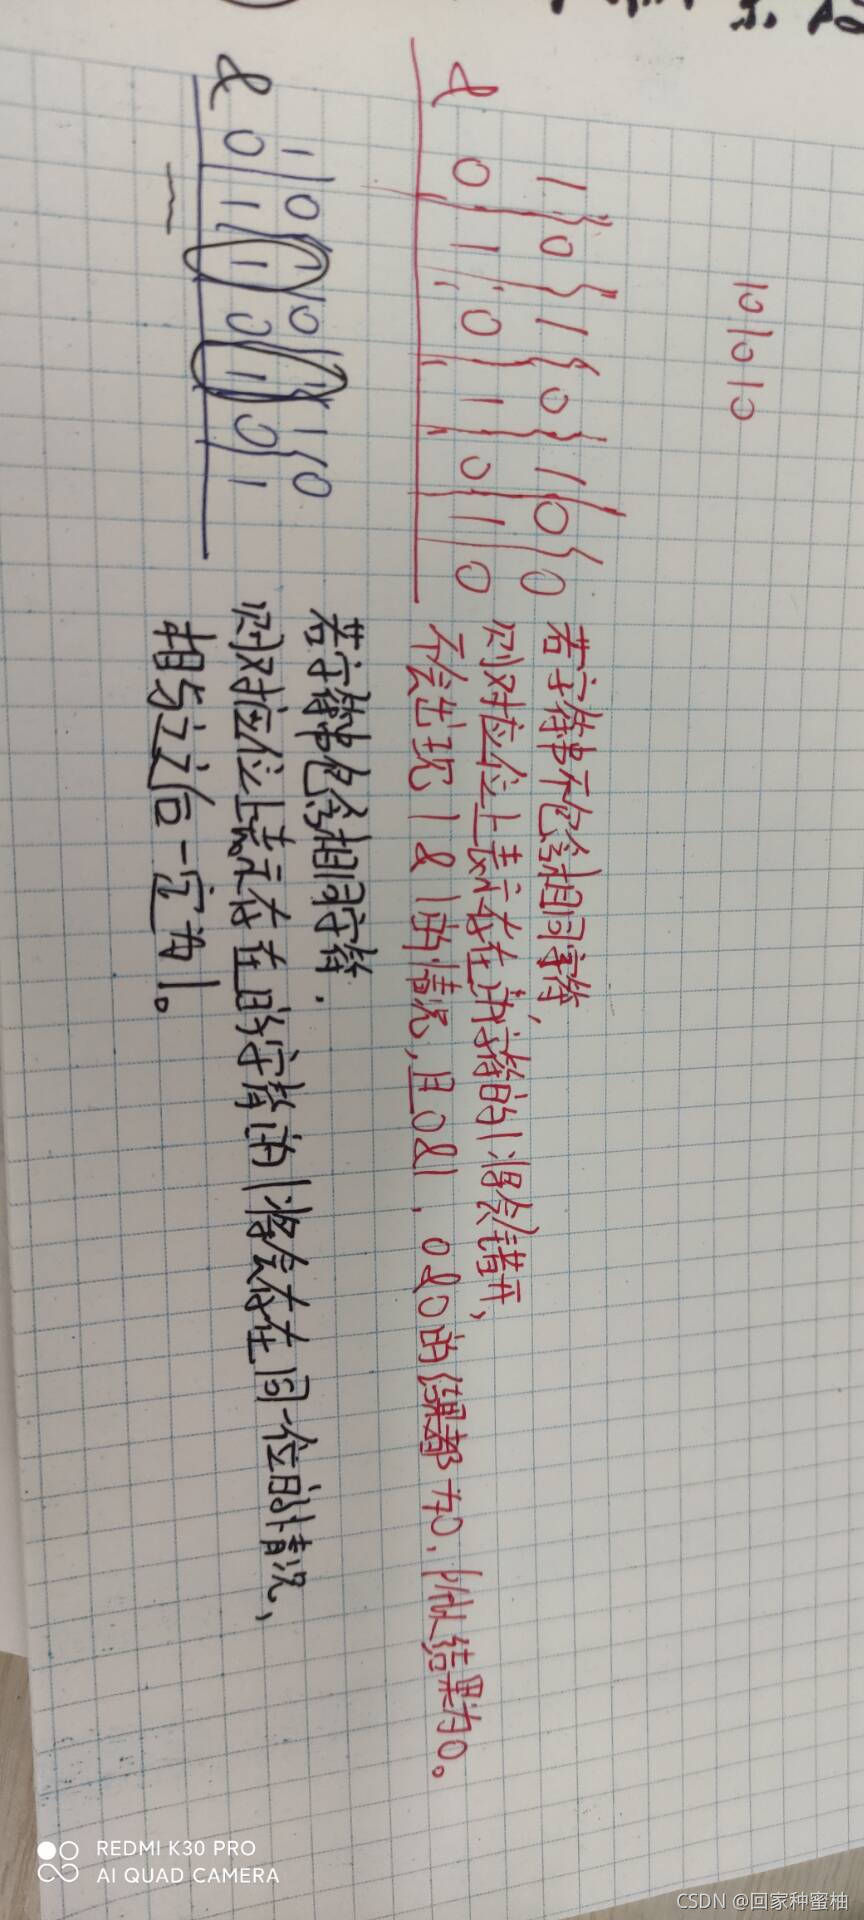 101010
1 0 1 0 1 0 0
& 0 1 0 1 0 1 0
若字符串不包含相同字符,
则对应位上表示存在该字符的1将会错开,
不会出现1&1的情况,且0&1、0&0的结果都为0,所以结果为0。
1 0 1 0 1 1 0
& 0 1 1 0 1 0 1
若字符串包含相同字符,
则对应位上表示存在的字符的1将会存在同一位的情况,
相与之后一定为1。
REDMI K30 PRO
AI QUAD CAMERA
CSDN @回家种蜜柚